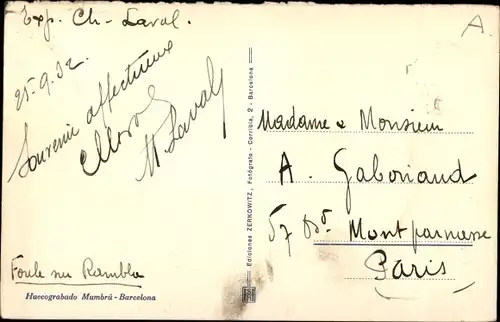 Exp. Ch. Laval.
25.9.32.
Souvenir affectueux
M. Laval
Foule sur Rambla
Huecograbado Mumbrú - Barcelona
Ediciones ZERKOWITZ, Fotógrafo - Corribia, 2 - Barcelona
A
Madame & Monsieur
A. Gaboriaud
57 Bd. Montparnasse
Paris